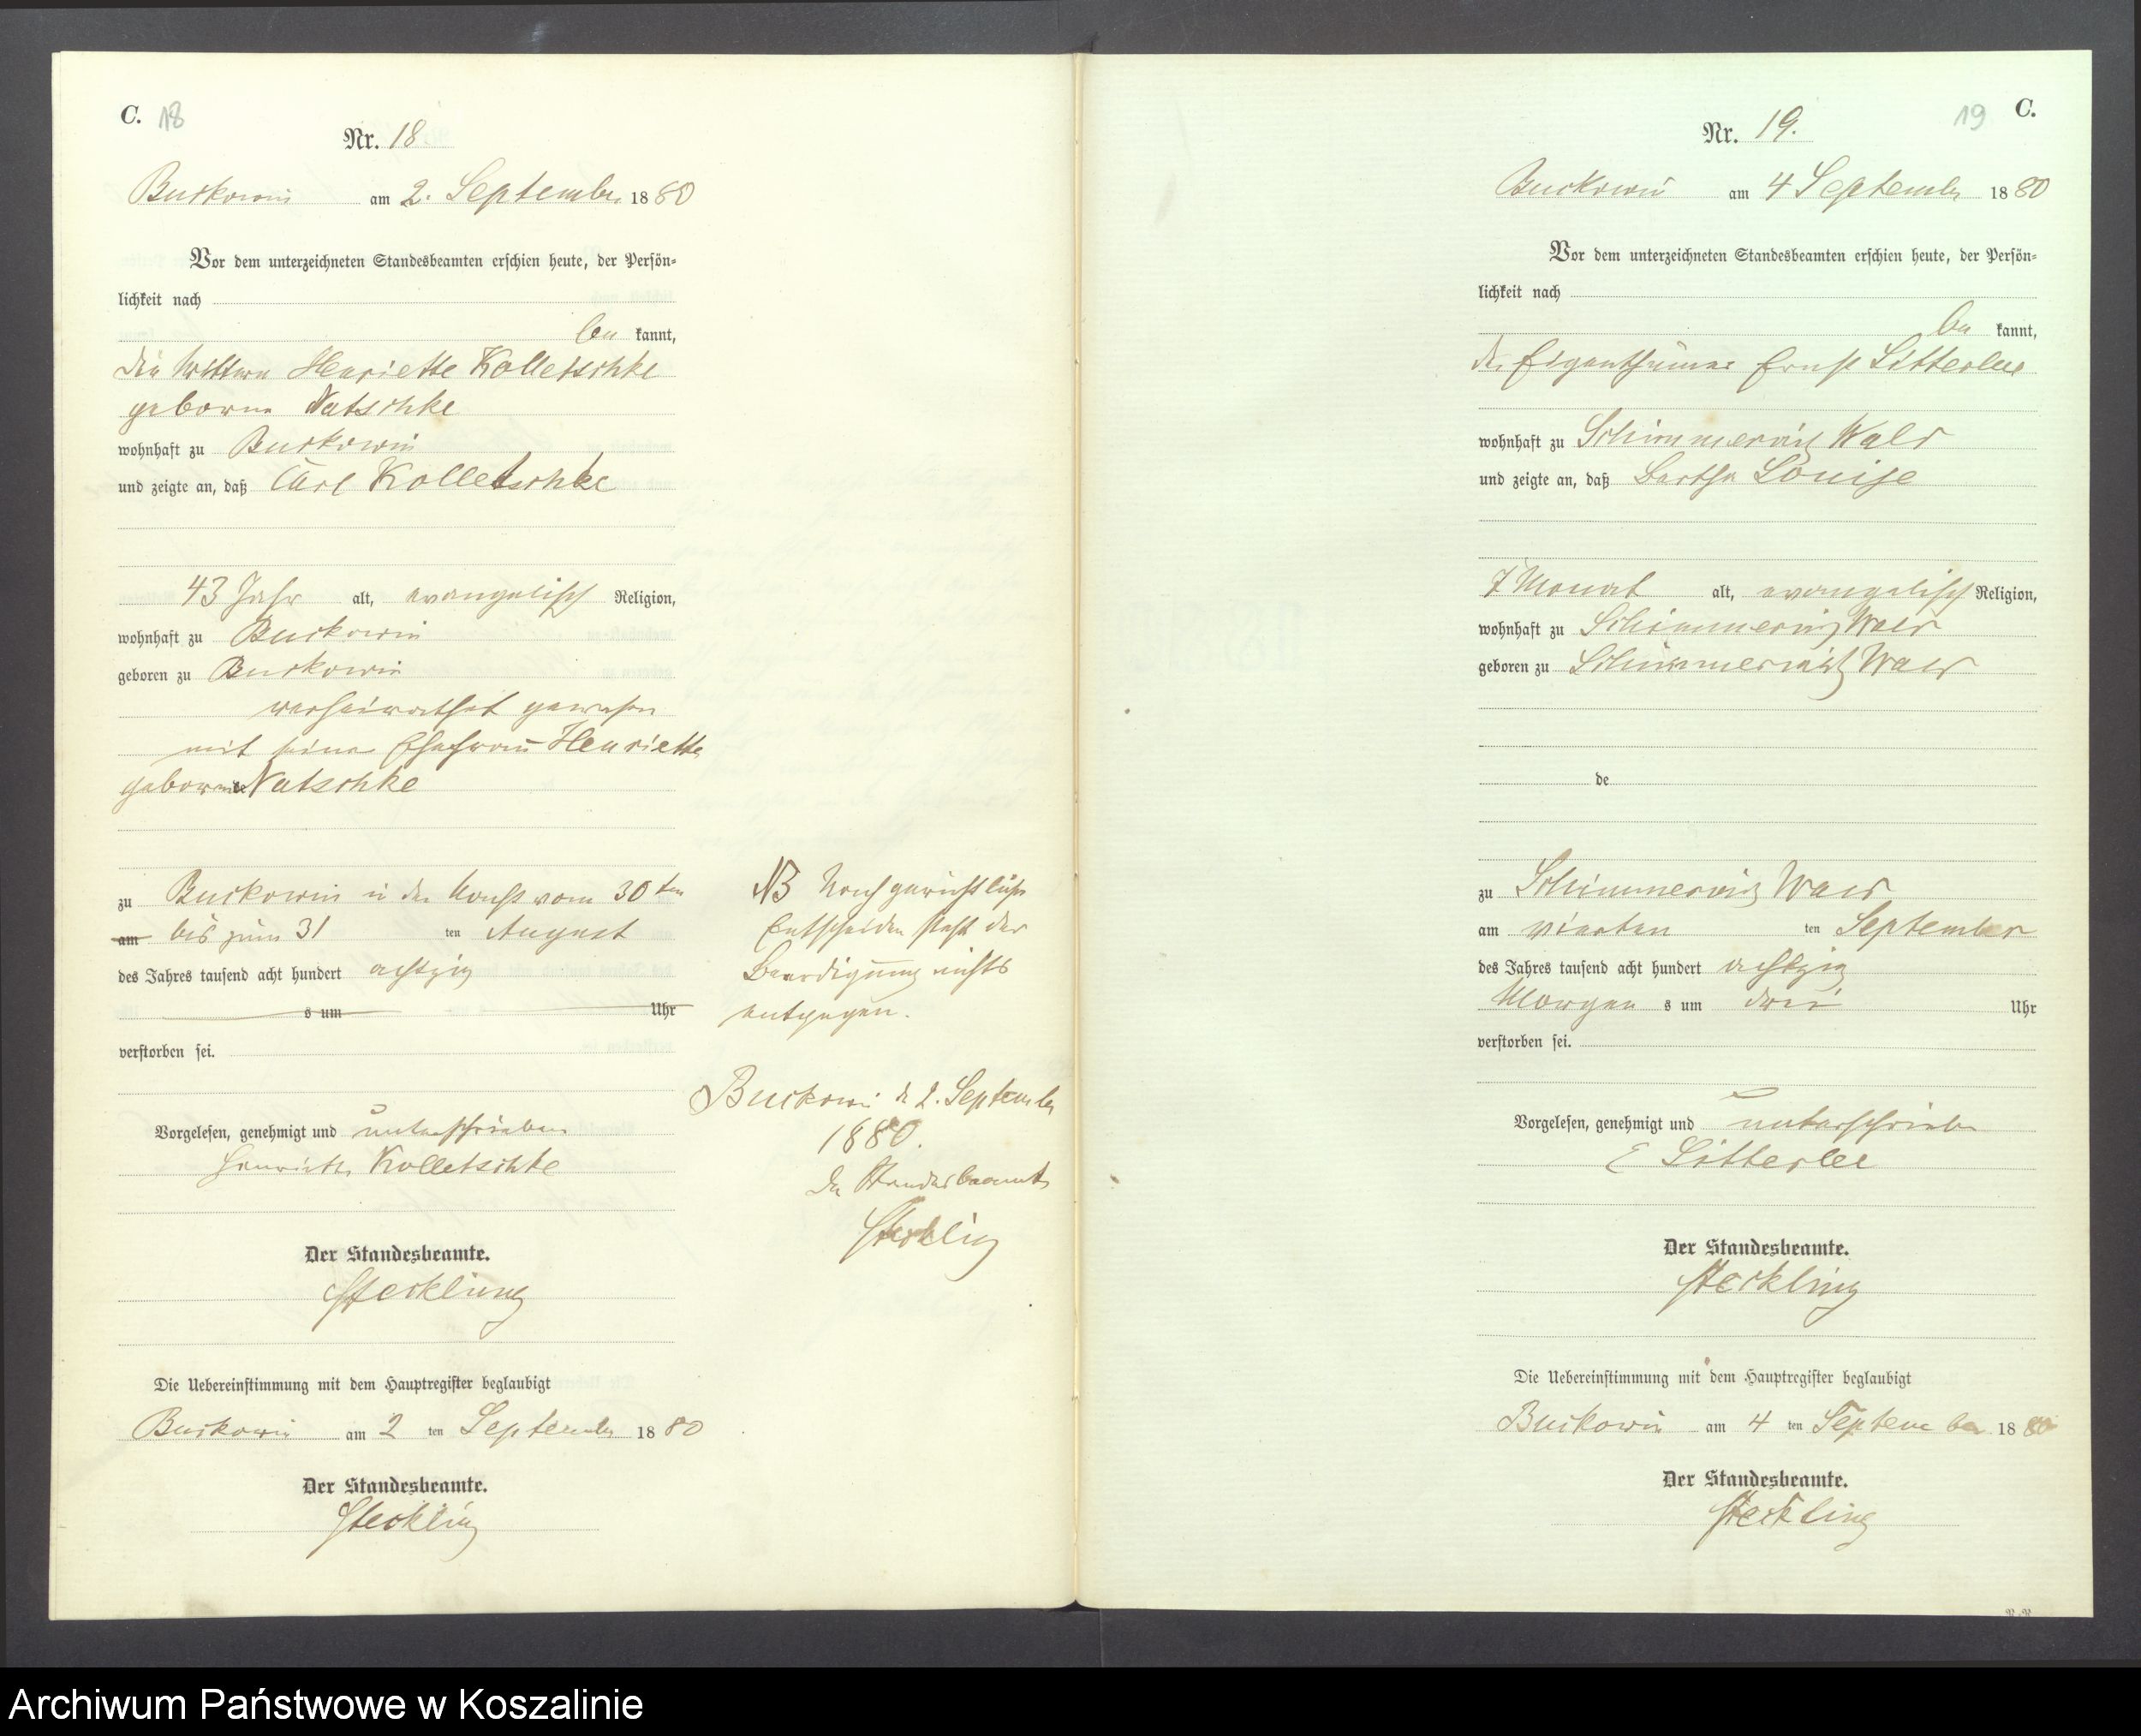 C. 18
Nr. 18.
Buckowin am 2. September 1880
Vor dem unterzeichneten Standesbeamten erschien heute, der Persön-
lichkeit nach
be kannt,
die Wittwe Henriette Kolletschke
geborne Natschke
wohnhaft zu Buckowin
und zeigte an, daß Carl Kolletschke
43 Jahr alt, evangelisch Religion,
wohnhaft zu Buckowin
geboren zu Buckowin
verheirathet gewesen
mit seiner Ehefrau Henriette
geborne Natschke
zu Buckowin in der Nacht vom 30ten
am bis zum 31 ten August
des Jahres tausend acht hundert achtzig
s um Uhr
verstorben sei.
Vorgelesen, genehmigt und unterschrieben
Henriette Kolletschke
Der Standesbeamte.
Steckling
Die Uebereinstimmung mit dem Hauptregister beglaubigt
Buckowin am 2 ten September 1880
Der Standesbeamte.
Steckling
NB Nach gerichtliche
Entscheiden steht der
Beerdigung nichts
entgegen.
Buckowin d 2. September
1880.
Der Standesbeamte
Steckling
19 C.
Nr. 19.
Buckowin am 4 September 1880
Vor dem unterzeichneten Standesbeamten erschien heute, der Persön-
lichkeit nach
be kannt,
der Eigenthümer Ernst Litterlee
wohnhaft zu Schimmerwitz Wald
und zeigte an, daß Bertha Louise
7 Monat alt, evangelisch Religion,
wohnhaft zu Schimmerwitz Wald
geboren zu Schimmerwitz Wald
de
zu Schimmerwitz Wald
am vierten ten September
des Jahres tausend acht hundert achtzig
Morgen s um drei Uhr
verstorben sei.
Vorgelesen, genehmigt und unterschrieben
E Litterlee
Der Standesbeamte.
Steckling
Die Uebereinstimmung mit dem Hauptregister beglaubigt
Buckowin am 4 ten September 1880
Der Standesbeamte.
Steckling
Archiwum Państwowe w Koszalinie